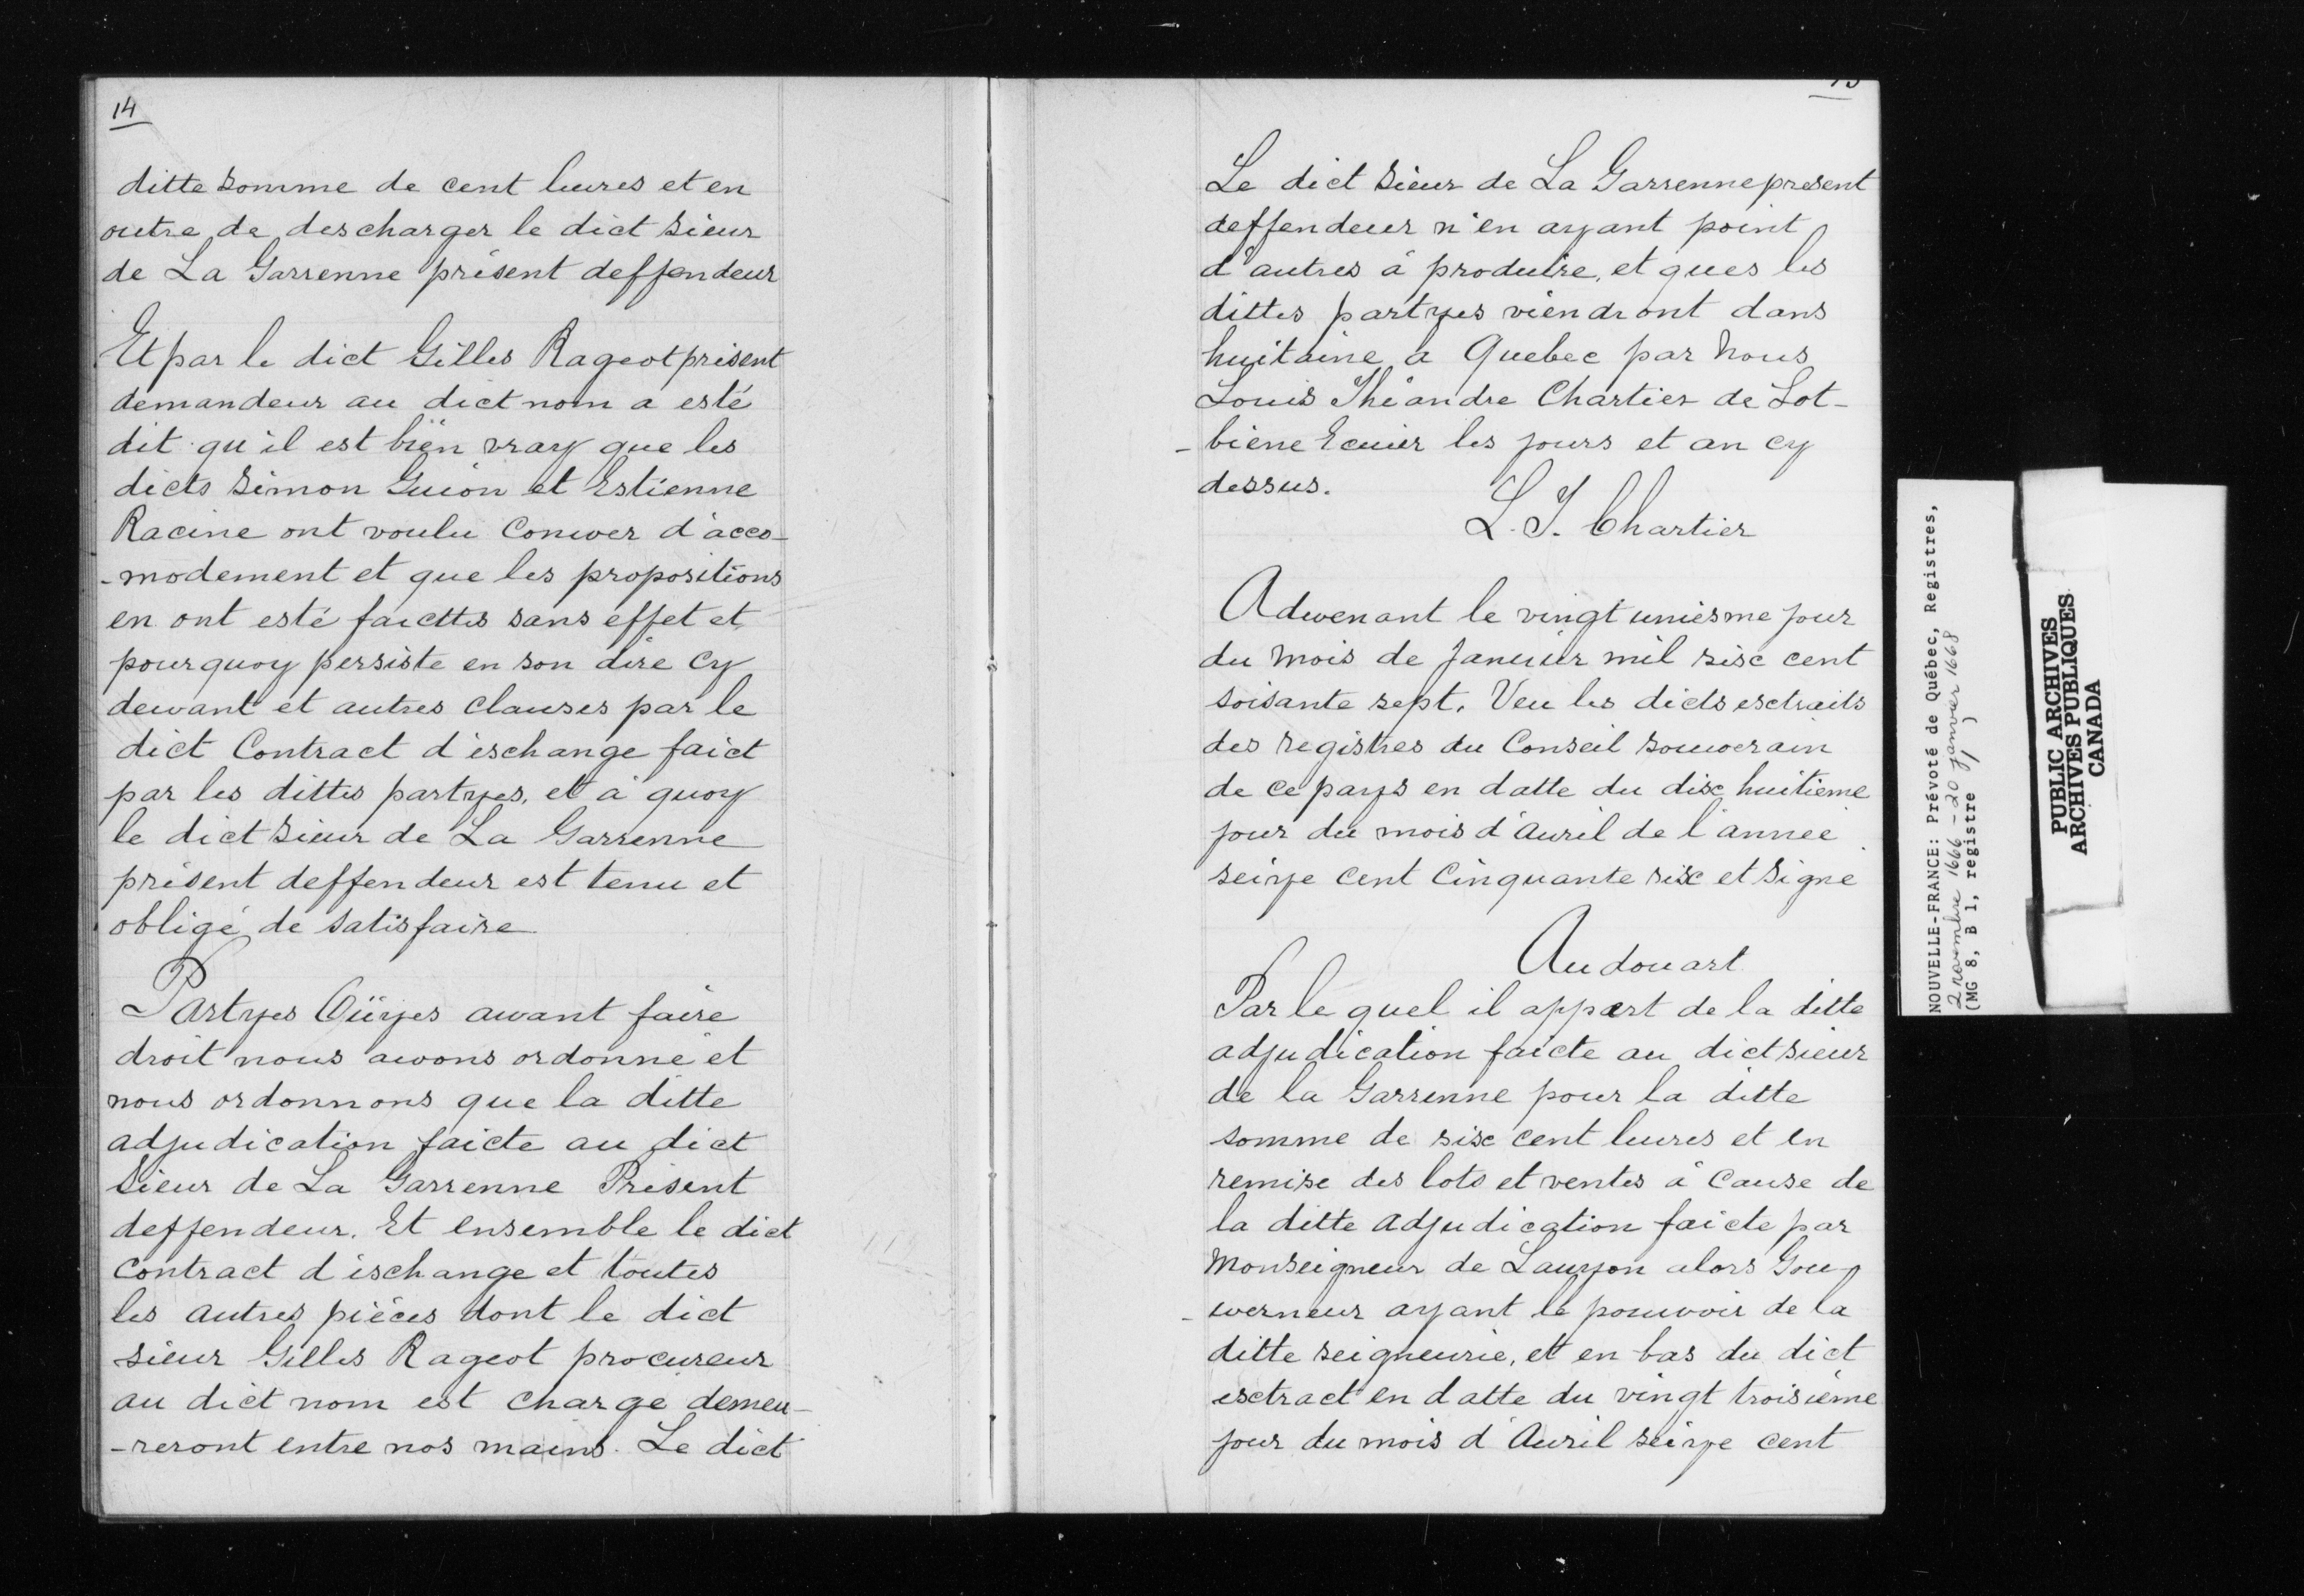 14
ditte somme de cent liures et en
outre de descharger le dict sieur
de La Garrenne présent deffendeur
Et par le dict Gilles Rageot présent
demandeur au dict nom a esté
dit qu'il est bien vray que les
dicts Simon Guion et Estienne
Racine ont voulu Conuver d'acco-
-modement et que les propositions
en ont esté faicttes sans effet et
pourquoy persiste en son dire cy
devant et autres clauses par le
dict Contract d'eschange faict
par les dittes partyes, et à quoy
le dict sieur de La Garrenne
présent deffendeur est tenu et
obligé de satisfaire
Partyes Oüyes avant faire
droit nous avons ordonné et
nous ordonnons que la ditte
adjudication faicte au dict
sieur de La Garrenne Présent
deffendeur. Et ensemble le dict
contract d'eschange et toutes
les autres pièces dont le dict
sieur Gilles Rageot procureur
au dict nom est chargé demeu-
-reront entre nos mains. Le dict
Le dict sieur de La Garrenne present
deffendeur n'en ayant point
d'autres à produire, et ques les
dittes partyes viendront dans
huitaine a Quebec par Nous
Louis Théandre Chartier de Lot-
-biene Ecuier les jours et an cy
dessus.
L. T. Chartier
Advenant le vingt uniesme jour
du Mois de Januier mil sisc cent
soisante sept. Veu les dicts esctraits
des registres du Conseil souverain
de ce pays en datte du disc huitième
jour du mois d'auril de l'année
seize cent Cinquante sisc et signe
Audouart
Par le quel il appert de la ditte
adjudication faicte au dict sieur
de la Garrenne pour la ditte
somme de sisc cent liures et en
remise des lots et ventes à Cause de
la ditte adjudication faicte par
Monseigneur de Lauzon alors Gou-
-verneur ayant le pouvoir de la
ditte seigneurie, et en bas du dict
esctract en datte du vingt troisième
jour du mois d'Auril seize cent
NOUVELLE-FRANCE: Prévoté de Québec, Registres,
2 novembre 1666 - 20 janvier 1668
(MG 8, B 1, registre 1)
PUBLIC ARCHIVES
ARCHIVES PUBLIQUES
CANADA